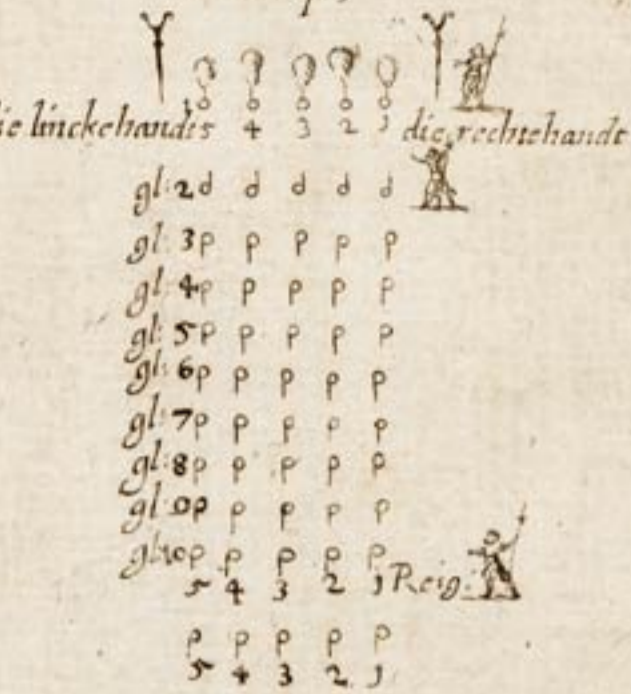 ie linckehandt 5 4 3 2 1 die rechtehandt
gl: 2 d d d d d
gl: 3 p p p p p
gl: 4 p p p p p
gl: 5 p p p p p
gl: 6 p p p p p
gl: 7 p p p p p
gl: 8 p p p p p
gl: 9 p p p p p
gl: 10 p p p p p
5 4 3 2 1 Reig:
p p p p p
5 4 3 2 1